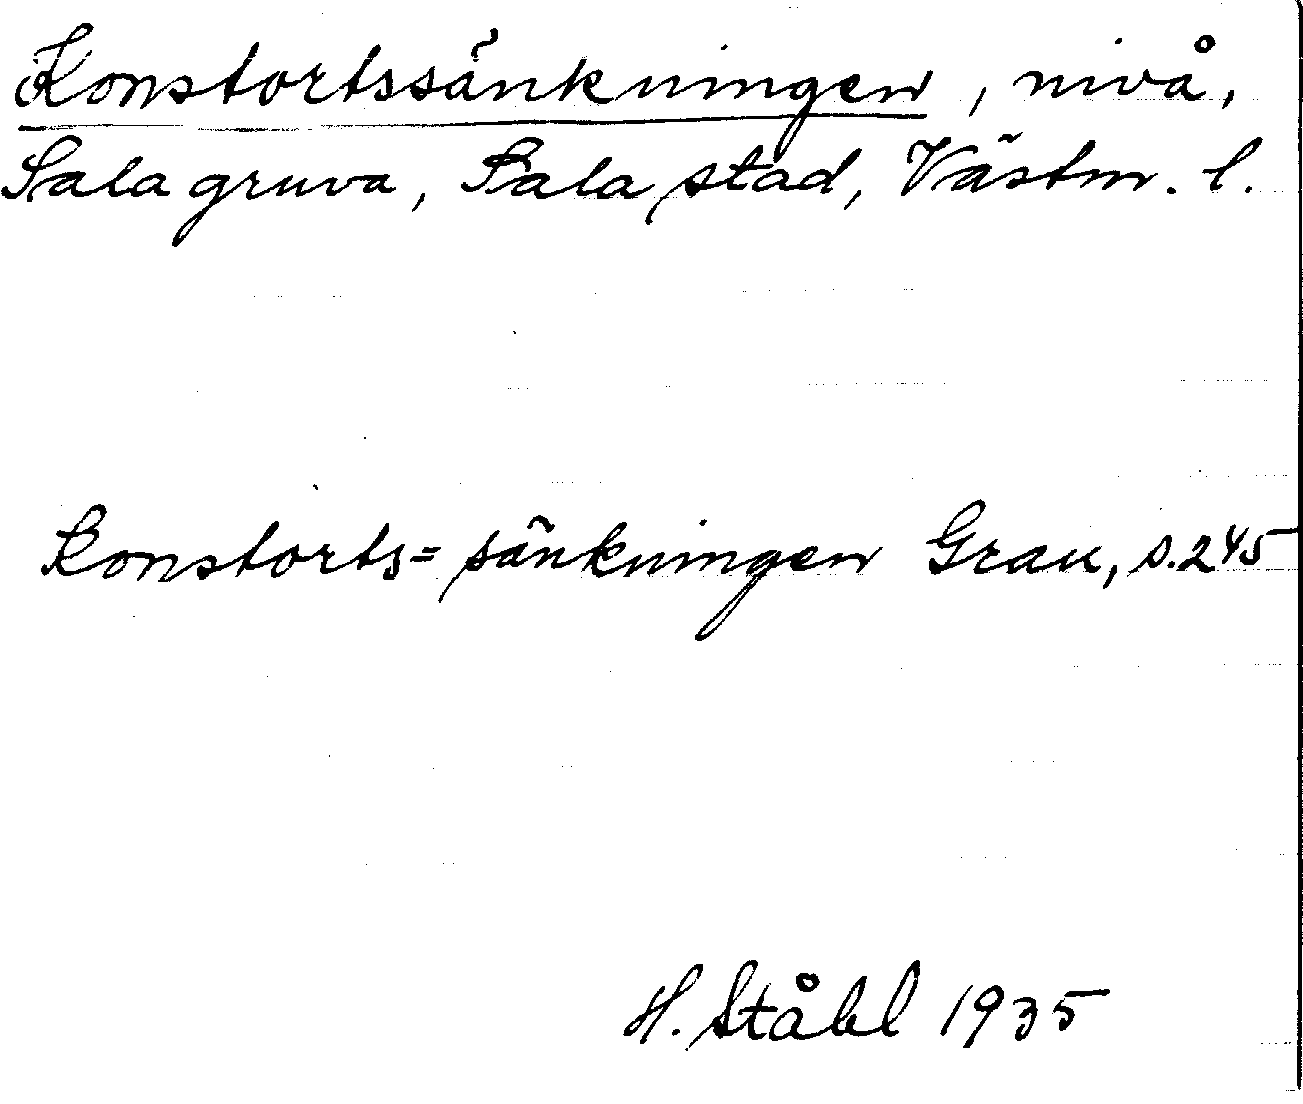 Konstortssänkningen, nivå,
Sala gruva, Sala stad, Västm. l.
Konstorts= sänkningen Grau, s. 245
H. Ståhl 1935